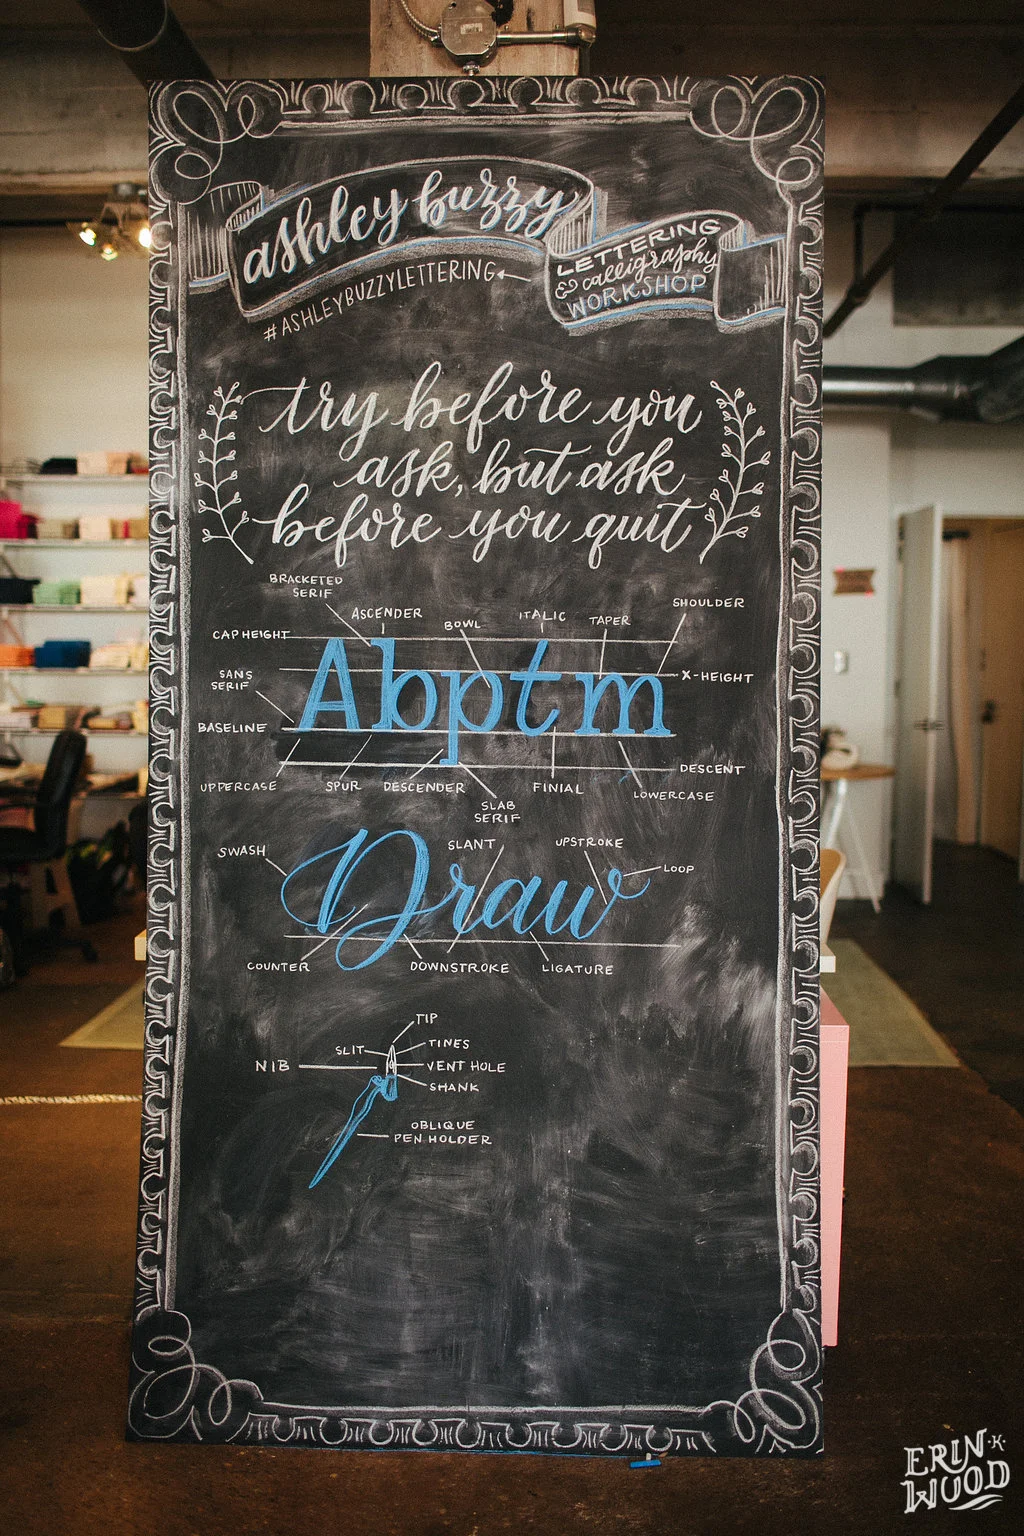 ashley buzzy
LETTERING
& calligraphy
WORKSHOP
#ASHLEYBUZZYLETTERING
try before you
ask, but ask
before you quit
BRACKETED
SERIF
ASCENDER
BOWL
ITALIC
TAPER
SHOULDER
CAP HEIGHT
SANS
SERIF
Abptm
X-HEIGHT
BASELINE
DESCENT
UPPERCASE
SPUR
DESCENDER
SLAB
SERIF
FINIAL
LOWERCASE
SWASH
SLANT
UPSTROKE
LOOP
Draw
COUNTER
DOWNSTROKE
LIGATURE
TIP
SLIT
TINES
NIB
VENT HOLE
SHANK
OBLIQUE
PEN HOLDER
ERIN K
WOOD